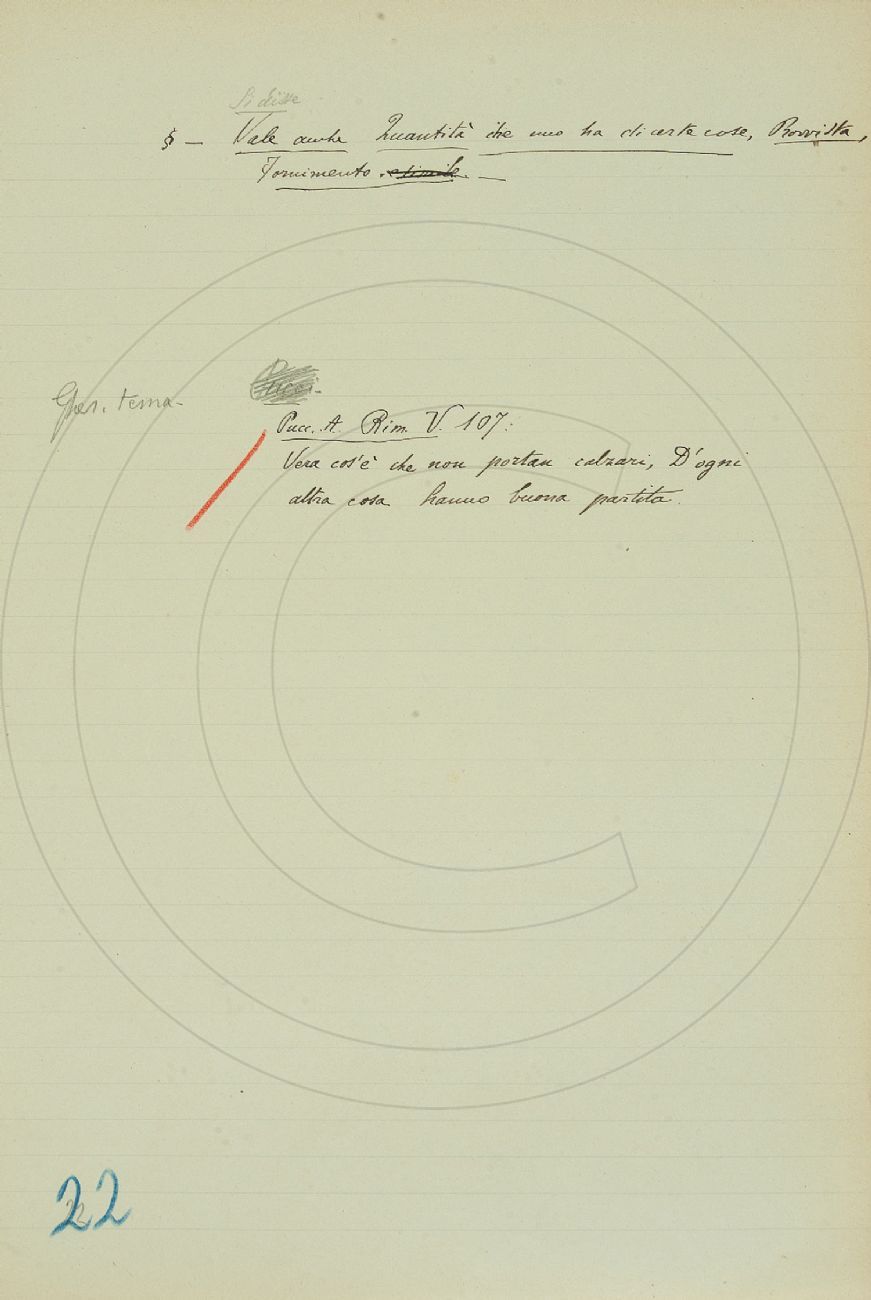 Si disse
§ — Vale anche Quantità che uno ha di certe cose, Provvista,
Fornimento. e simile. —
Pucci.
tema.
Pucc. A. Rim. V. 107:
Vera cos'è che non portan calzari, D'ogni
altra cosa hanno buona partita.
22